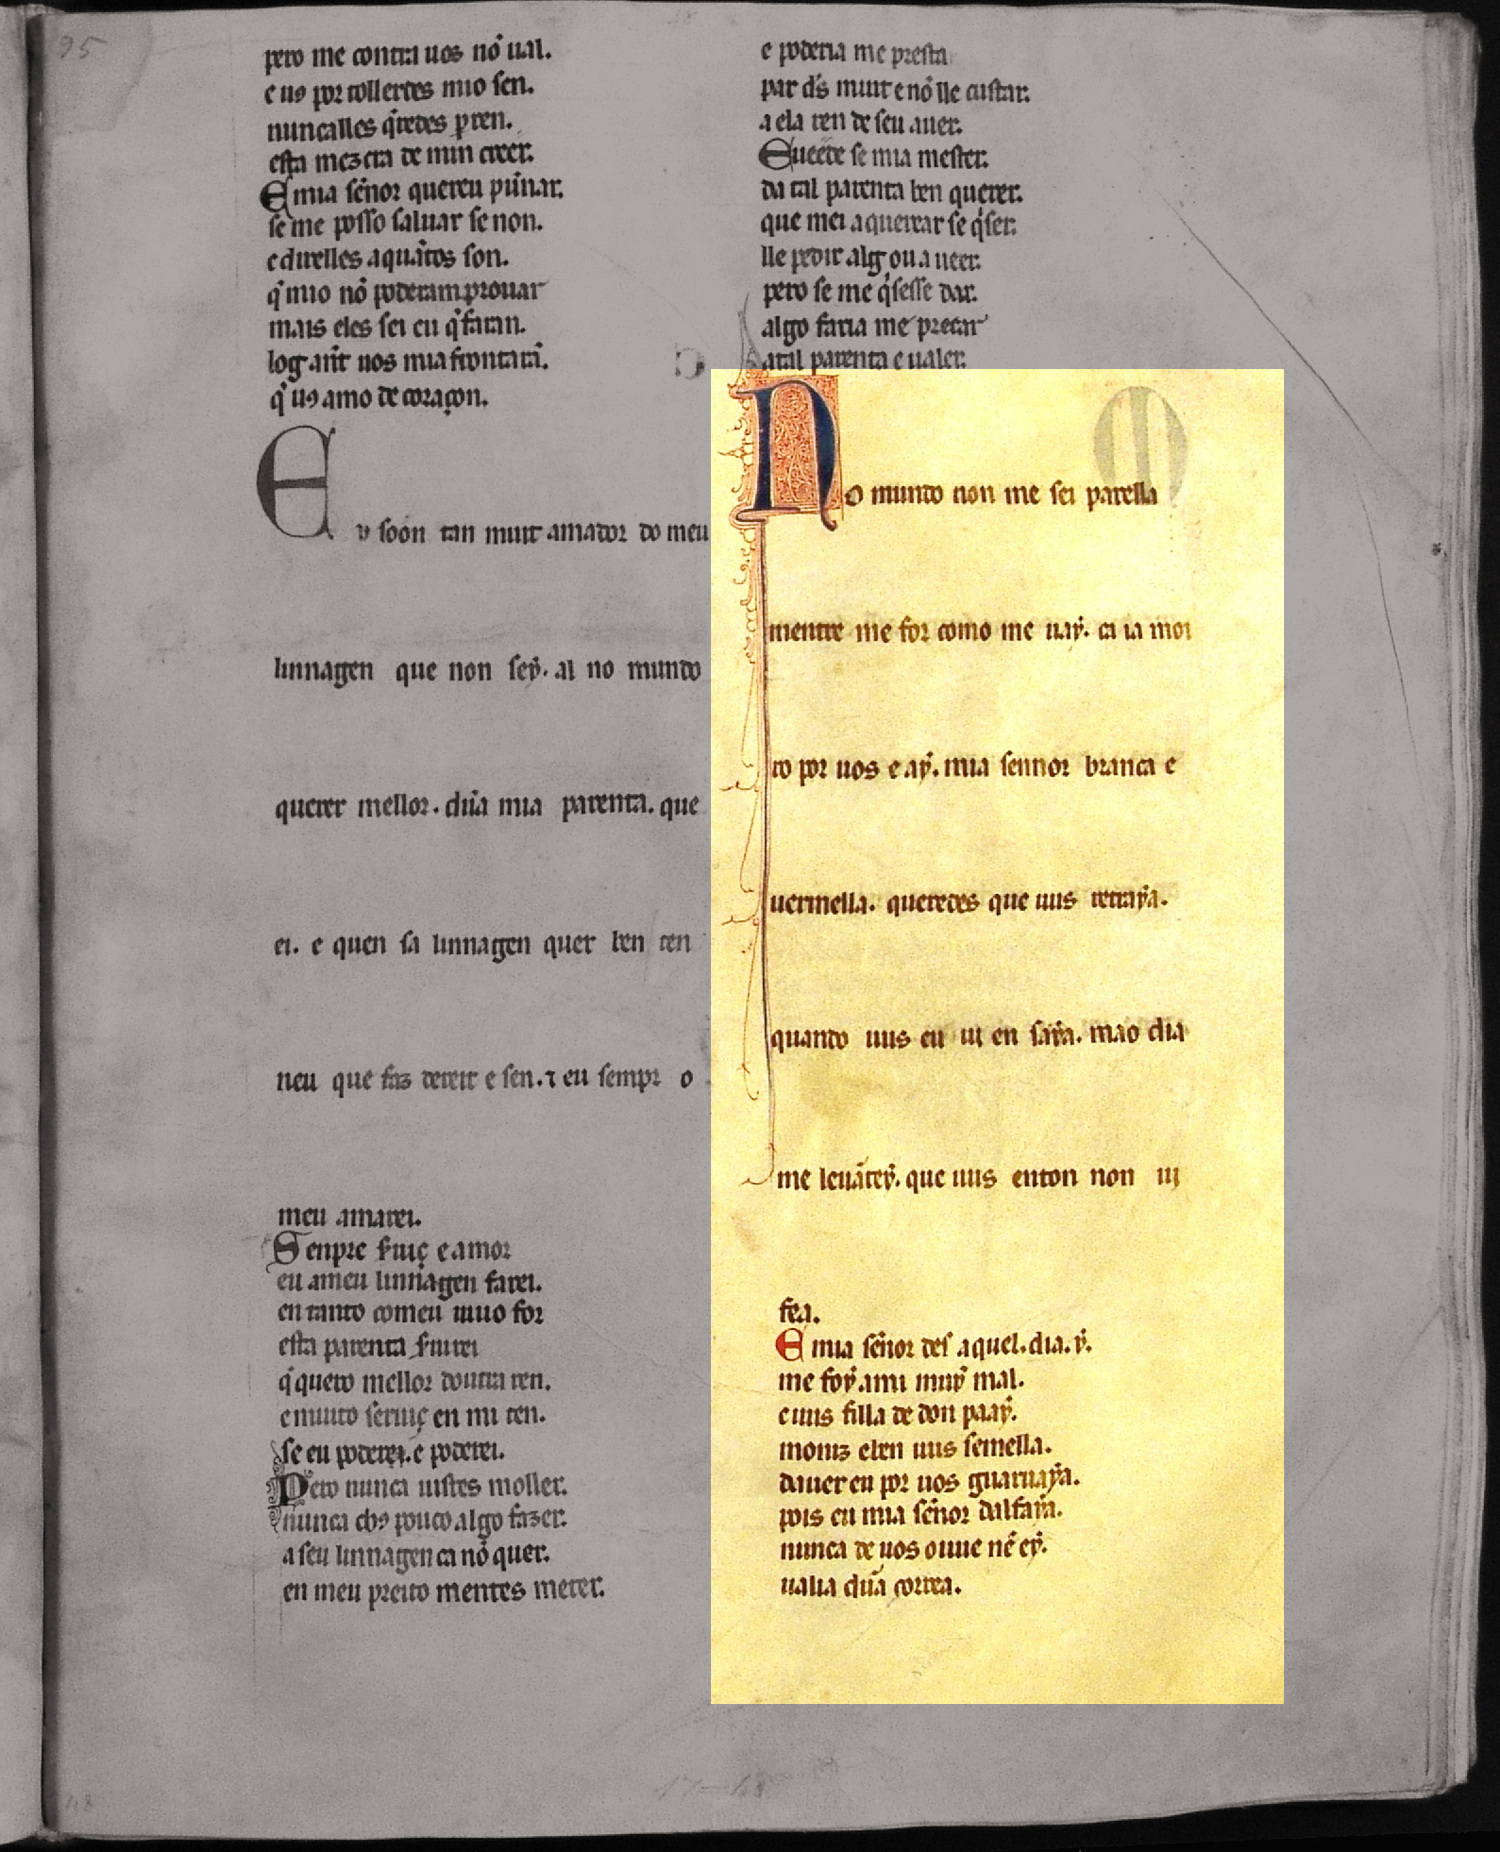 95
pero me contra uos nõ ual.
e us por tollerdes mio sen.
nuncalles q̃redes p ren.
esta mezcra de min creer.
E mia sẽnor quereu pũnar.
se me posso saluar se non.
e direlles aquãtos son.
q̃ mio nõ poderam prouar
mais eles sei eu q̃ faran.
log ant uos mia frontarã.
q̃ us amo de coraçon.
E u soon tan muit amador do meu
linnagen que non seẏ. al no mundo
querer mellor. dũa mia parenta. que
ei. e quen sa linnagen quer ben ten
neu que faz dereit e sen. ⁊ eu sempr o
meu amarei.
Senpre seruiç e amor
eu a meu linnagen farei.
en tanto comeu uiuo for
esta parenta seruirei
q̃ quero mellor doutra ren.
e muito seruiç en mi ten.
se eu poderei. e poderei.
Pero nunca uistes moller.
nunca chus pouco algo fazer.
a seu linnagen ca nõ quer.
en meu preito mentes meter.
e poderia me prestar
par d̃s muit e nõ lle custar.
a ela ren de seu auer.
E ueede se mia mester.
da tal parenta ben querer.
que mei a queixar se q̃ser.
lle pedir alg ou a ueer.
pero se me q̃sesse dar.
algo faria me preçar
atal parenta e ualer.
No mundo non me sei parella
mentre me for como me uaẏ. ca ia moi
ro por uos e aẏ. mia sennor branca e
uermella. queredes que uus retraẏa.
quando uus eu ui en saẏa. mao dia
me leuãteẏ. que uus enton non ui
fea.
E mia sẽnor des aquel. dia. ẏ.
me foẏ a mi muẏ mal.
e uus filla de don paaẏ.
moniz e ben uus semella.
dauer eu por uos guaruaẏa.
pois eu mia sẽnor dalfaẏa.
nunca de uos ouue nẽ eẏ.
ualia dũa correa.
48